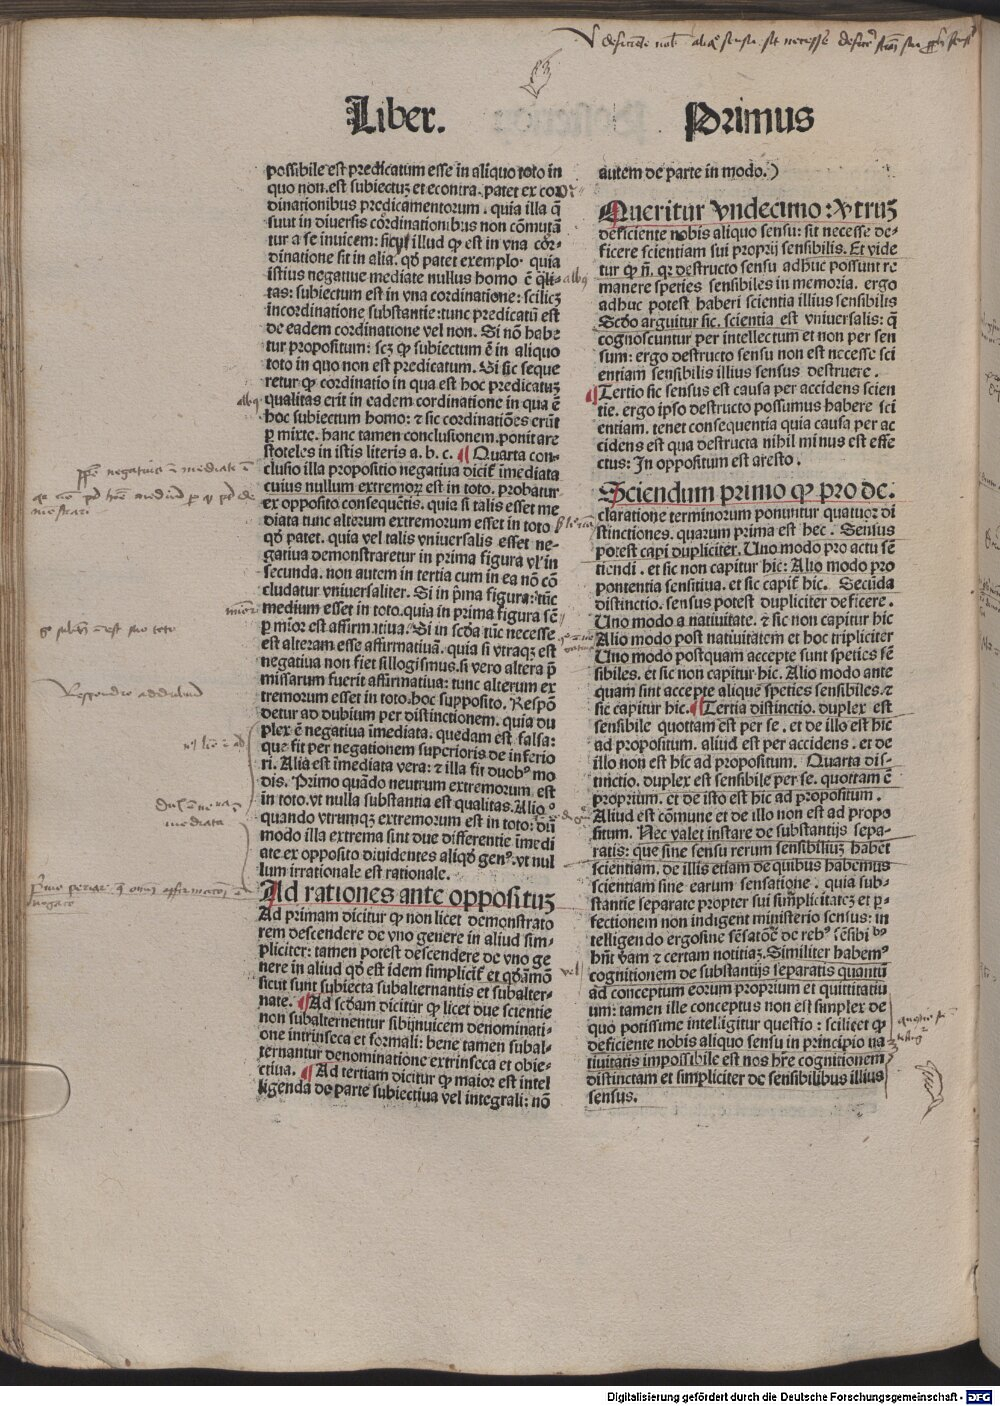 Liber. Primus
possibile est predicatum esse in aliquo toto in
quo non.est subiectuȝ et econtra.patet ex coor
dinationibus predicamentorum. quia illa q̄
sunt in diuersis coͤrdinationibus non cōmutā
tur a se inuicem: sicut illud qꝫ est in vna coͤr-
dinatione sit in alia. qd́ patet exemplo. quia
istius negatiue mediate nullus homo ē q̄li-
tas: subiectum est in vna cordinatione: scilicȝ
incordinatione substantie: tunc predicatū est
de eadem cordinatione vel non. Si nō habe
tur propositum: scȝ qꝫ subiectum ē in aliquo
toto in quo non est predicatum. Si sic seque
retur qꝫ cordinatio in qua est hoc predicatuȝ
qualitas erit in eadem cordinatione in qua ē
hoc subiectum homo: ⁊ sic cordinatiōes erūt
ꝑmixte. hanc tamen conclusionem.ponit are
stoteles in istis literis a. b. c. ¶ Quarta con-
clusio illa propositio negatiua dicit́ īmediata
cuius nullum extremoꝝ est in toto. probatur
ex opposito consequētis. quia si talis esset me
diata tunc alterum extremorum esset in toto
qd́ patet. quia vel talis vniuersalis esset ne-
gatiua demonstraretur in prima figura vl' in
secunda. non autem in tertia cum in ea nō cō
cludatur vniuersaliter. Si in p̄ma figura: tūc
medium esset in toto.quia in prima figura sē
ꝑ mīor est affirmatiua. Si in scd́a tūc necesse
est alteram esse affirmatiuā. quia si vtraqꝫ est
negatiua non fiet sillogismus.si vero altera p̄
missarum fuerit affirmatiua: tunc alterum ex
tremorum esset in toto.hoc supposito. Respō
detur ad dubium per distinctionem. quia du
plex ē negatiua īmediata. quedam est falsa:
que fit per negationem superioris de inferio
ri. Alia est īmediata vera: ⁊ illa fit duobꝰ mo
dis. Primo quādo neutrum extremorum est
in toto.vt nulla substantia est qualitas.Alio
quando vtrumqꝫ extremorum est in toto: dū
modo illa extrema sint due differentie īmedi
ate ex opposito diuidentes aliqd́ genꝰ.vt nul
lum irrationale est rationale.
Ad rationes ante opposituȝ
Ad primam dicitur qꝫ non licet demonstrato
rem descendere de vno genere in aliud sim-
pliciter: tamen potest descendere de vno ge
nere in aliud qd́ est idem simplicit́ et qd́āmō
sicut sunt subiecta subalternantis et subalter-
nate. ¶ Ad scd́am dicitur qꝫ licet due scientie
non subalternentur sibiinuicem denominati-
one intrinseca et formali: bene tamen subal-
ternantur denominatione extrinseca et obie-
ctiua. ¶ Ad tertiam dicitur qꝫ maior est intel
ligenda de parte subiectiua vel integrali: nō
autem de parte in modo.)
Queritur vndecimo: vtruȝ
deficiente nobis aliquo sensu: sit necesse de-
ficere scientiam sui proprij sensibilis. Et vide
tur qꝫ n̄. qr destructo sensu adhuc possunt re
manere speties sensibiles in memoria. ergo
adhuc potest haberi scientia illius sensibilis
Scd́o arguitur sic. scientia est vniuersalis: q̄
cognoscuntur per intellectum et non per sen
sum: ergo destructo sensu non est necesse sci
entiam sensibilis illius sensus destruere.
¶ Tertio sic sensus est causa per accidens scien
tie. ergo ipso destructo possumus habere sci
entiam. tenet consequentia quia causa per ac
cidens est qua destructa nihil minus est effe
ctus: In oppositum est aresto.
Sciendum primo qꝫ pro de.
claratione terminorum ponuntur quatuor di
stinctiones. quarum prima est hec. Sensus
potest capi dupliciter. Uno modo pro actu sē
tiendi. et sic non capitur hic: Alio modo pro
pontentia sensitiua. et sic capit́ hic. Secūda
distinctio. sensus potest dupliciter deficere.
Uno modo a natiuitate. ⁊ sic non capitur hic
Alio modo post natiuitātem et hoc tripliciter
Uno modo postquam accepte sunt speties sē
sibiles. et sic non capitur hic. Alio modo ante
quam sint accepte alique speties sensibiles.⁊
sic capitur hic. ¶ Tertia distinctio. duplex est
sensibile quottam est per se. et de illo est hic
ad propositum. aliud est per accidens. et de
illo non est hic ad propositum. Quarta dis-
tinctio. duplex est sensibile per se. quottam ē
proprium. et de isto est hic ad propositum.
Aliud est cōmune et de illo non est ad propo
situm. Nec valet instare de substantijs sepa-
ratis: que sine sensu rerum sensibiliuȝ habet
scientiam. de illis etiam de quibus habemus
scientiam sine earum sensatione. quia sub-
stantie separate propter sui simplicitateȝ et ꝑ-
fectionem non indigent ministerio sensus: in
telligendo ergosine sēsatōe de rebꝰ sēsibi bꝰ
hn̄t v̄am ⁊ certam notitiaȝ. Similiter habemꝰ
cognitionem de substantijs separatis quantū
ad conceptum eorum proprium et quittitatiu
um: tamen ille conceptus non est simplex de
quo potissime intelligitur questio: scilicet qꝫ
deficiente nobis aliquo sensu in principio na
tiuitatis impossibile est nos hr̄e cognitionem
distinctam et simpliciter de sensibilibus illius
sensus.
Digitalisierung gefördert durch die Deutsche Forschungsgemeinschaft - DFG